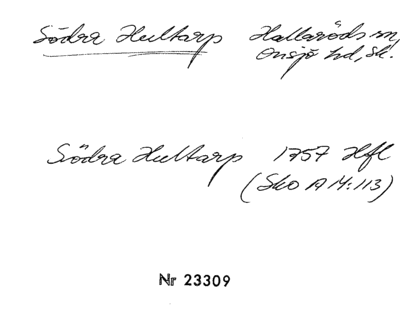 Södra Hultarp Hallaröds sn,
Onsjö hd, Sk.
Södra Hultarp 1757 Hfl
(Sko A M:113)
Nr 23309